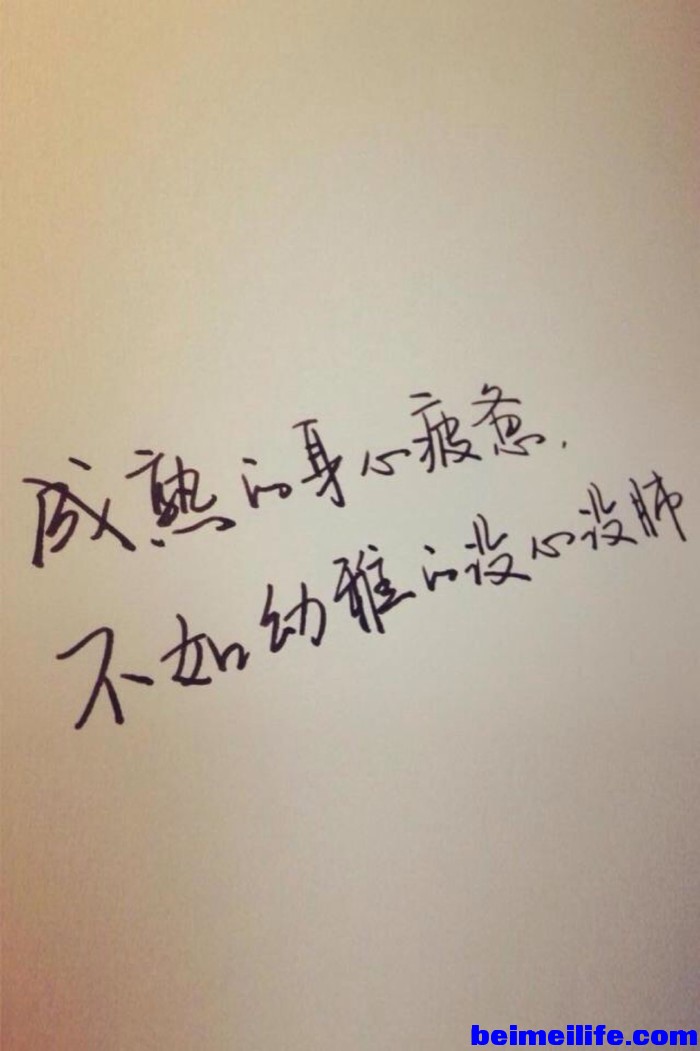 成熟的身心疲惫,
不如幼稚的没心没肺
beimeilife.com